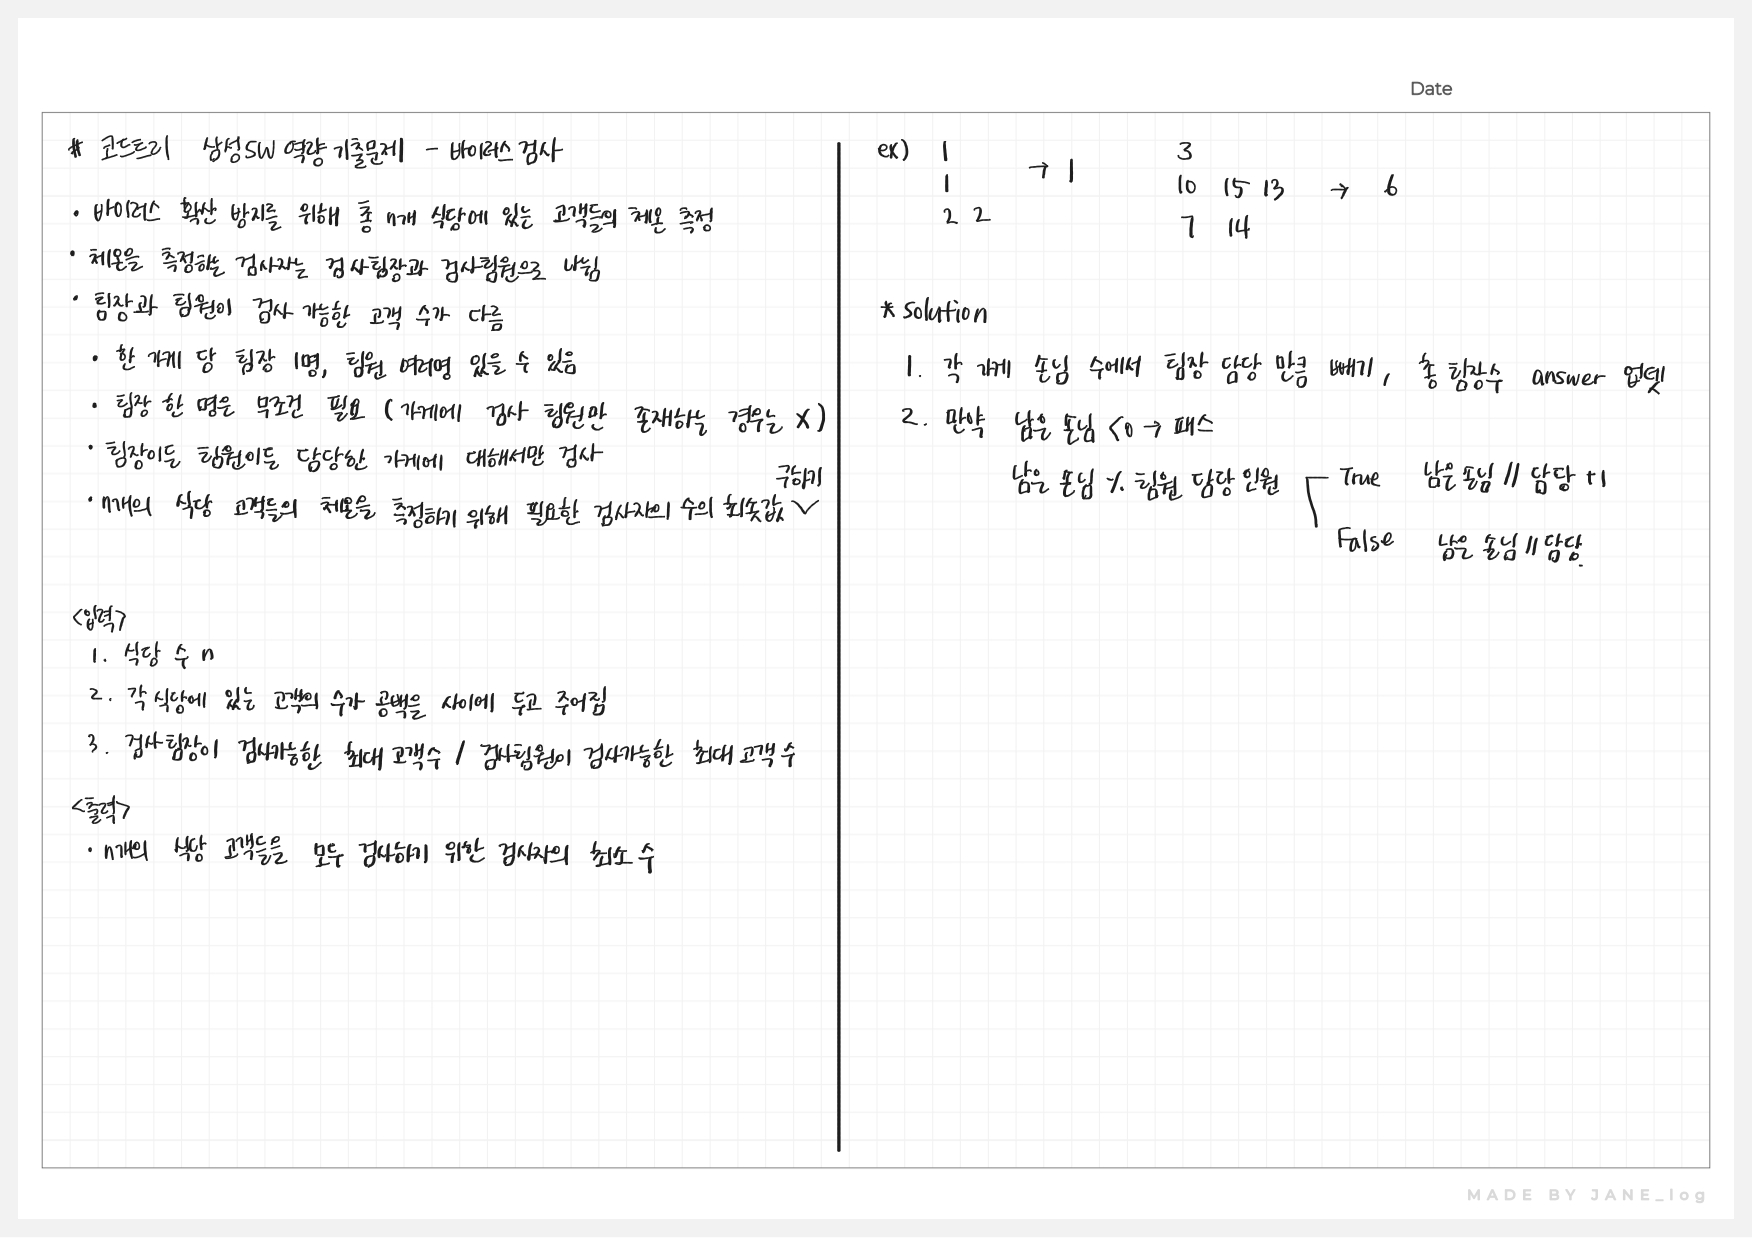 Date
# 코드트리 삼성SW 역량 기출문제 - 바이러스 검사
• 바이러스 확산 방지를 위해 총 n개 식당에 있는 고객들의 체온 측정
• 체온을 측정하는 검사자는 검사팀장과 검사팀원으로 나뉨
• 팀장과 팀원이 검사 가능한 고객 수가 다름
• 한 가게 당 팀장 1명, 팀원 여러명 있을 수 있음
• 팀장 한 명은 무조건 필요 (가게에 검사 팀원만 존재하는 경우는 X)
• 팀장이든 팀원이든 담당한 가게에 대해서만 검사
• n개의 식당 고객들의 체온을 측정하기 위해 필요한 검사자의 수의 최솟값 ∨ 구하기
<입력>
1. 식당 수 n
2. 각 식당에 있는 고객의 수가 공백을 사이에 두고 주어짐
3. 검사팀장이 검사가능한 최대 고객수 / 검사팀원이 검사가능한 최대 고객 수
<출력>
• n개의 식당 고객들을 모두 검사하기 위한 검사자의 최소 수
ex) 1
1 → 1
2 2
3
10 15 13 → 6
7 14
* solution
1. 각 가게 손님 수에서 팀장 담당 만큼 빼기, 총 팀장수 answer 업뎃
2. 만약 남은 손님 <0 → 패스
남은 손님 % 팀원 담당 인원 True 남은 손님 // 담당 +1
False 남은 손님 // 담당.
MADE BY JANE_log